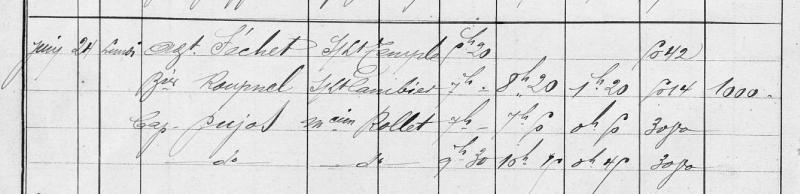 juin 24 Lundi Sgt. Séchet S/Lt Temple 5h20 So42
Roupnel S/Lt Cambier 7h - 8h20 1h20 So14 1000 -
Cap. Pujos Mcien Rollet 7h - 7h 0h 3070
do do 9h30 10h 0h 3070